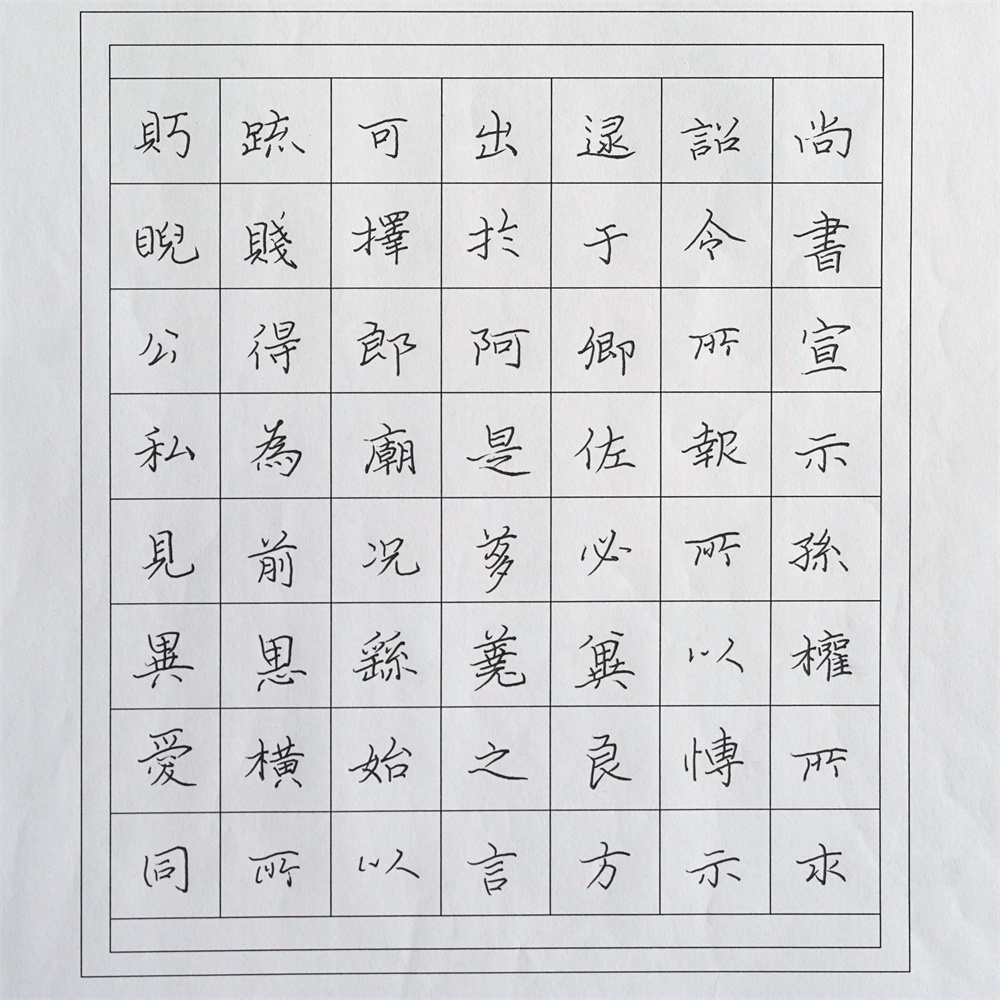 尚書宣示孫權所求
詔令所報所以愽示
逮于卿佐必冀良方
出於阿是芻蕘之言
可擇郎廟况繇始以
疏賤得為前恩橫所
眄睨公私見異愛同